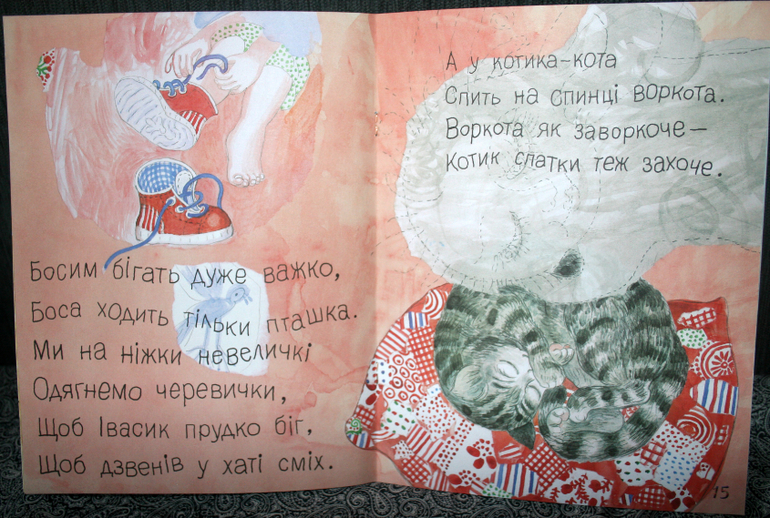 Босим бігать дуже важко,
Боса ходить тільки пташка.
Ми на ніжки невеличкі
Одягнемо черевички,
Щоб Івасик прудко біг,
Щоб дзвенів у хаті сміх.
А у котика-кота
Спить на спинці воркота.
Воркота як заворкоче—
Котик спатки теж захоче.
15